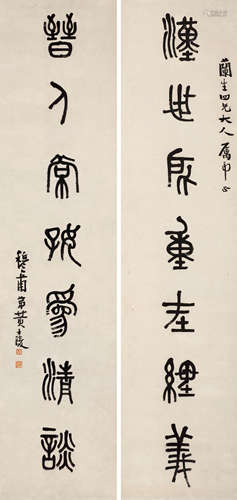 蘭生四兄大人屬即正
漢世所重在經義
晉人常好爲清談
穆甫弟黃士陵